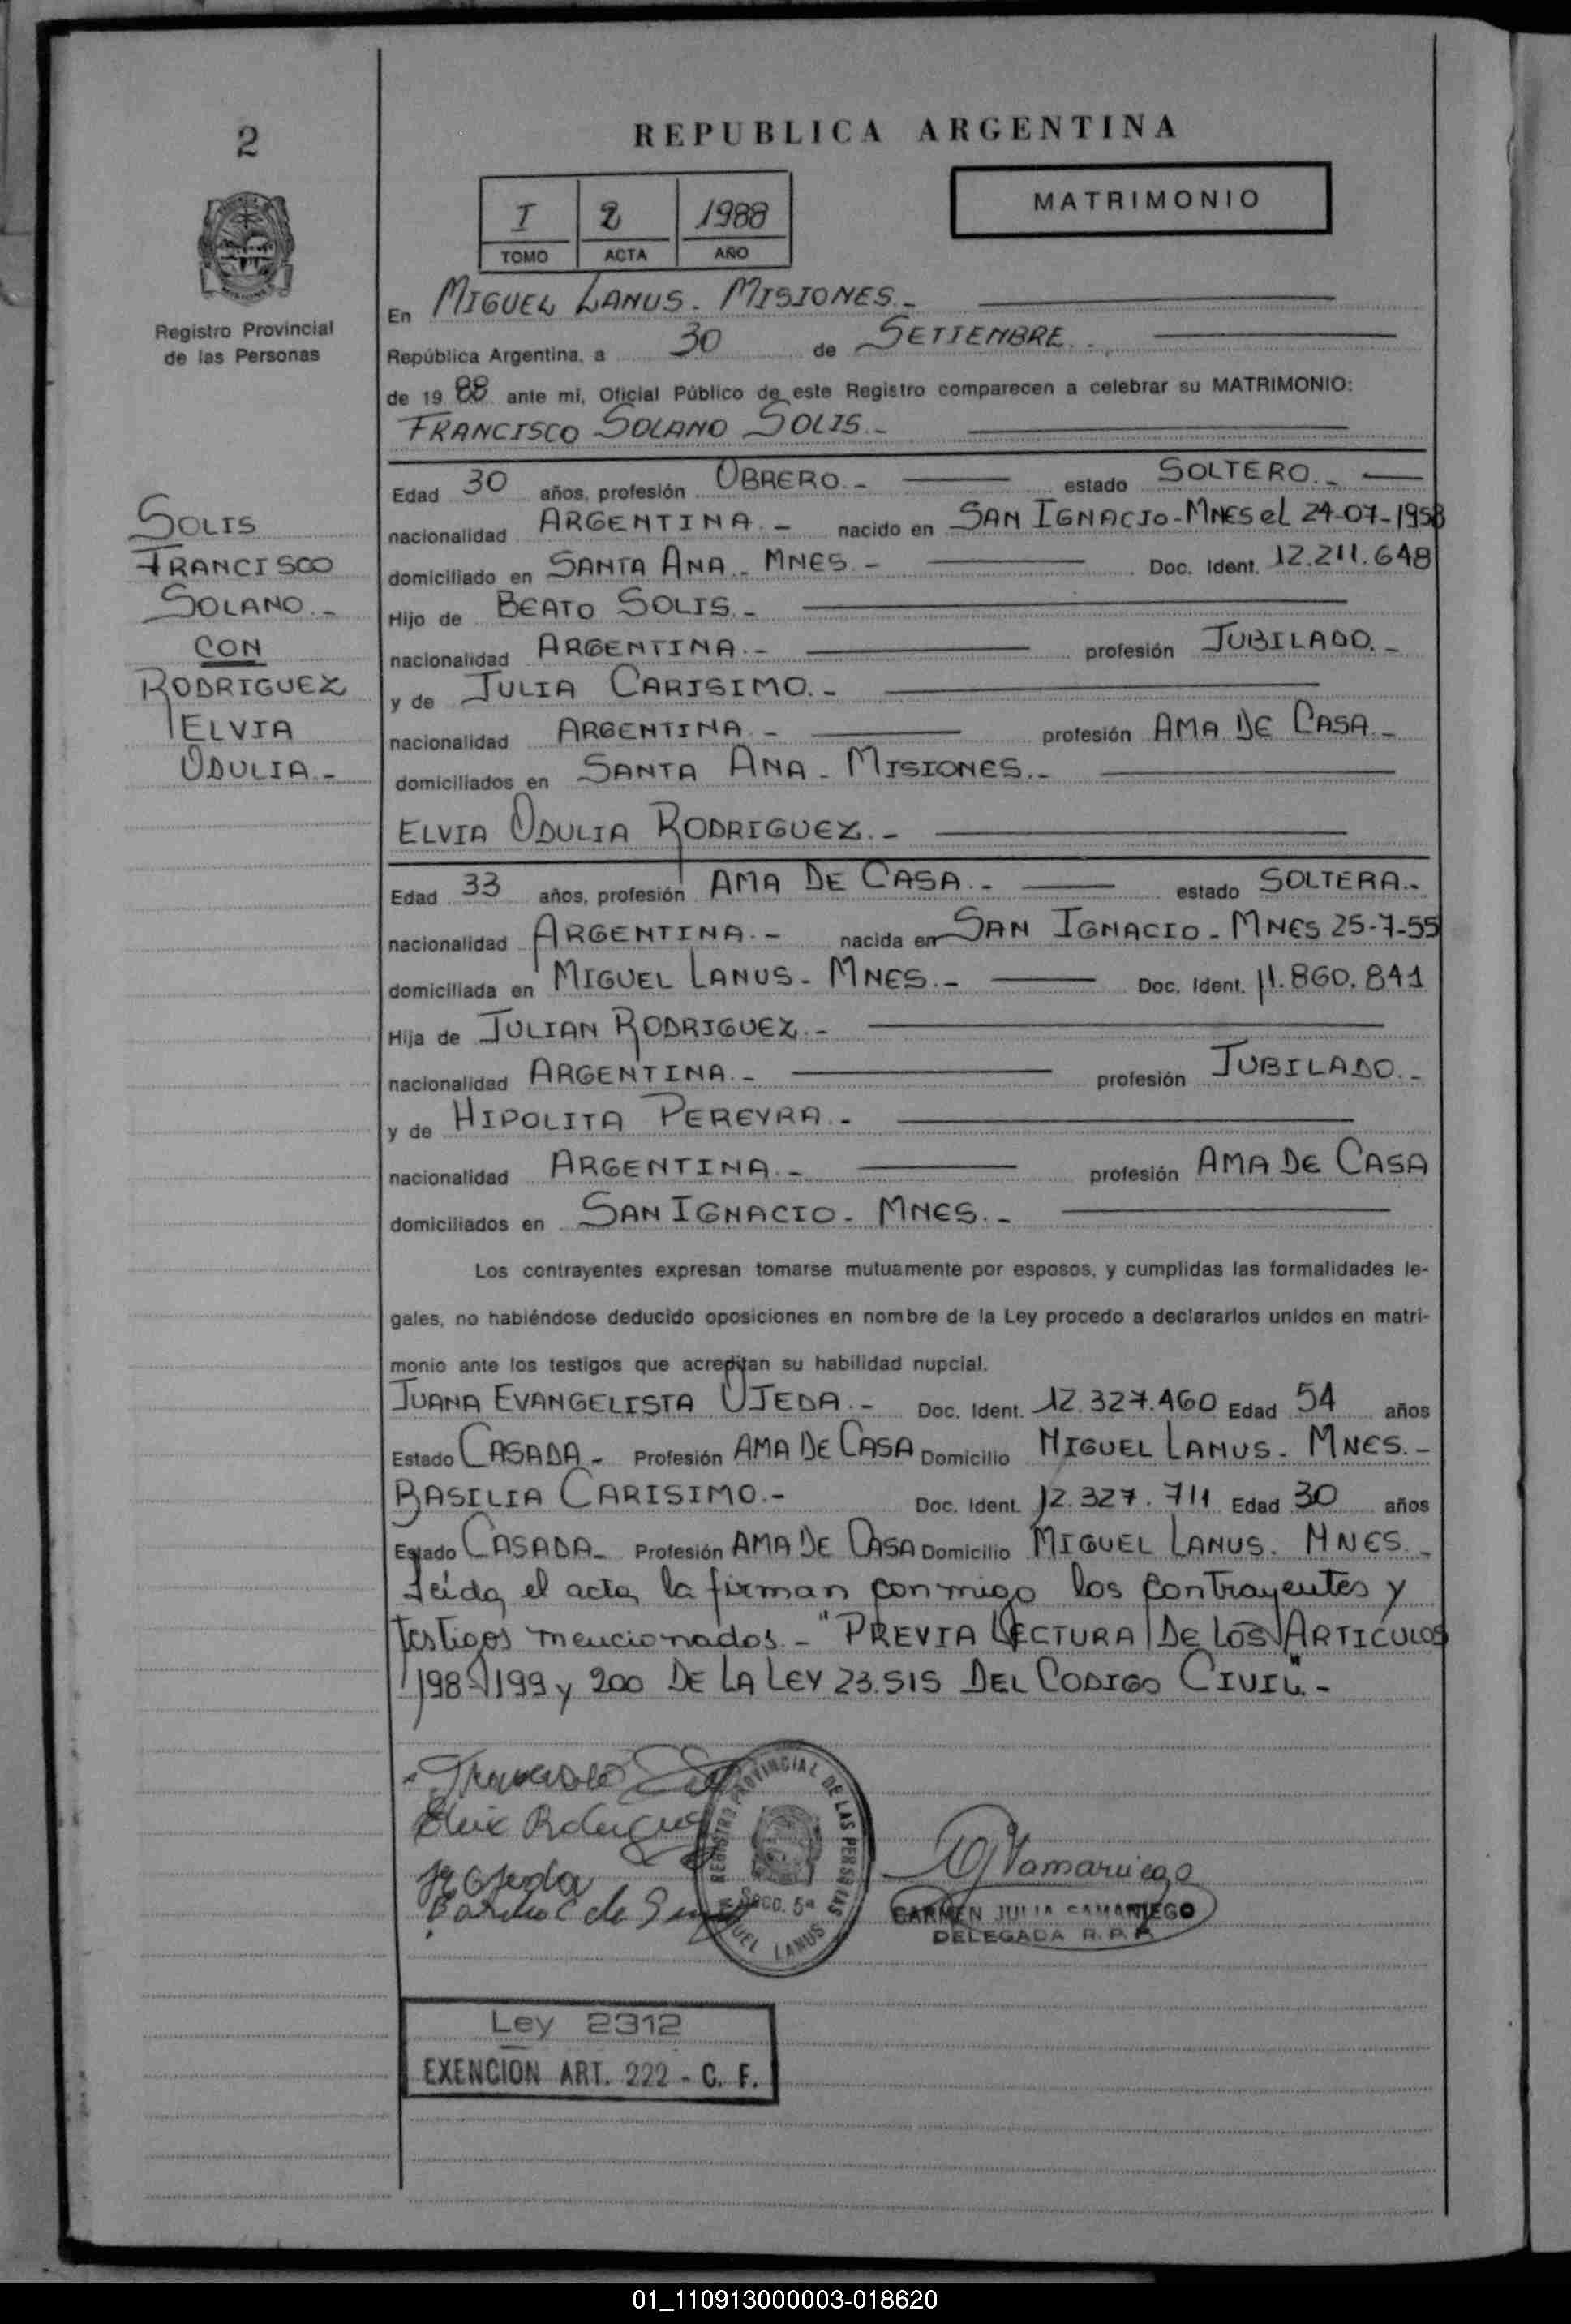 2
REPUBLICA ARGENTINA
I 2 1988
TOMO ACTA AÑO
MATRIMONIO
Registro Provincial
de las Personas
En MIGUEL LANUS - MISIONES.-
República Argentina, a 30 de SETIEMBRE.
de 19 88 ante mi, Oficial Público de este Registro comparecen a celebrar su MATRIMONIO:
FRANCISCO SOLANO SOLIS.-
Edad 30 años, profesión OBRERO.- estado SOLTERO.-
nacionalidad ARGENTINA.- nacido en SAN IGNACIO-MNES el 24-07-1958
domiciliado en SANTA ANA - MNES.- Doc. Ident. 12.211.648
Hijo de BEATO SOLIS.-
nacionalidad ARGENTINA.- profesión JUBILADO.-
y de JULIA CARISIMO.-
nacionalidad ARGENTINA.- profesión AMA DE CASA.-
domiciliados en SANTA ANA - MISIONES.-
SOLIS
FRANCISCO
SOLANO.-
CON
RODRIGUEZ
ELVIA
ODULIA.-
ELVIA ODULIA RODRIGUEZ.-
Edad 33 años, profesión AMA DE CASA.- estado SOLTERA.-
nacionalidad ARGENTINA.- nacida en SAN IGNACIO - MNES 25-7-55
domiciliada en MIGUEL LANUS - MNES.- Doc. Ident. 11.860.841
Hija de JULIAN RODRIGUEZ.-
nacionalidad ARGENTINA.- profesión JUBILADO.-
y de HIPOLITA PEREYRA.-
nacionalidad ARGENTINA.- profesión AMA DE CASA
domiciliados en SAN IGNACIO - MNES.-
Los contrayentes expresan tomarse mutuamente por esposos, y cumplidas las formalidades le-
gales, no habiéndose deducido oposiciones en nombre de la Ley procedo a declararlos unidos en matri-
monio ante los testigos que acreditan su habilidad nupcial.
JUANA EVANGELISTA OJEDA.- Doc. Ident. 12.327.460 Edad 54 años
Estado CASADA - Profesión AMA DE CASA Domicilio MIGUEL LANUS - MNES.-
BASILIA CARISIMO.- Doc. Ident. 12.327.711 Edad 30 años
Estado CASADA - Profesión AMA DE CASA Domicilio MIGUEL LANUS - MNES.-
Leida el acta la firman conmigo los contrayentes y
testigos mencionados.- "PREVIA LECTURA DE LOS ARTICULOS
198-199 y 200 DE LA LEY 23.515 DEL CODIGO CIVIL".-
REGISTRO PROVINCIAL DE LAS PERSONAS
Secc. 5ª
MIGUEL LANUS
CARMEN JULIA SAMANIEGO
DELEGADA R. P. P.
Ley 2312
EXENCION ART. 222 - C. F.
01_110913000003-018620